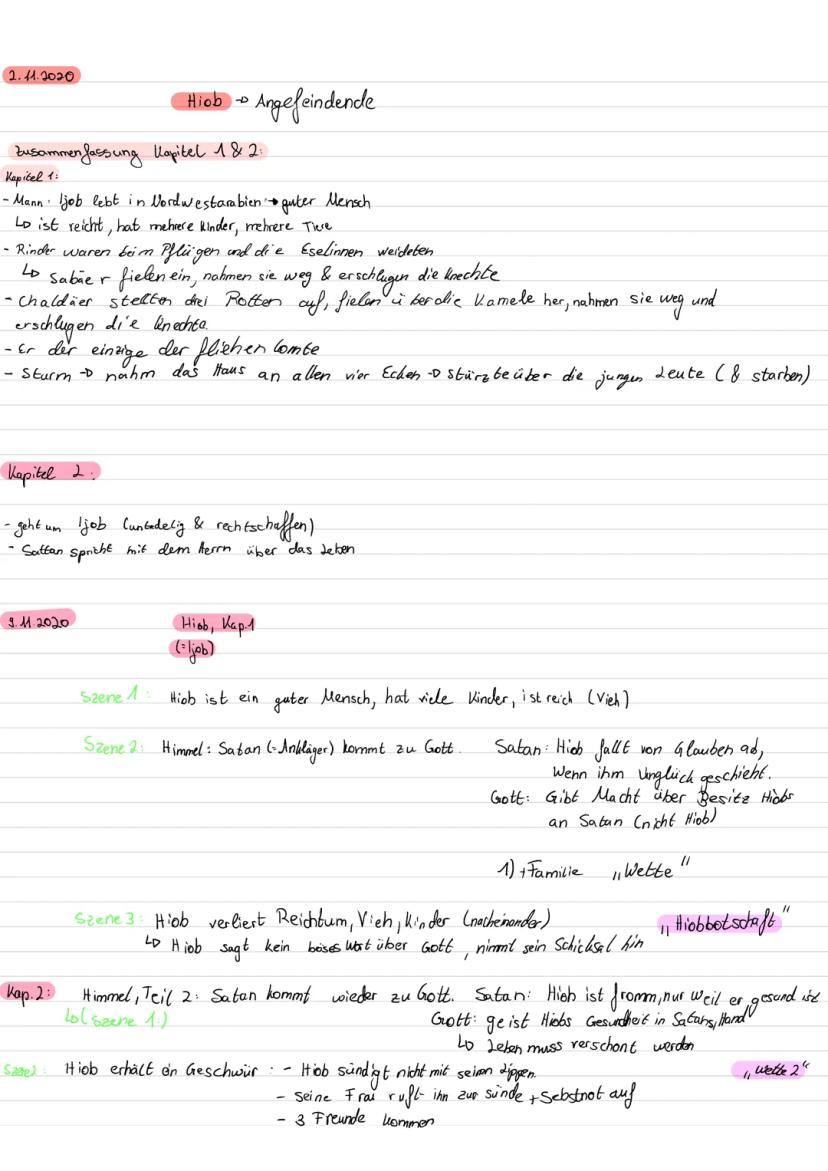 2.11.2020
Hiob → Angefeindende
Zusammenfassung Kapitel 1 & 2:
Kapitel 1:
- Mann: Ijob lebt in Nordwestarabien → guter Mensch
↳ ist reicht, hat mehrere Kinder, mehrere Tiere
- Rinder waren beim Pflügen und die Eselinnen weideten
↳ Sabäer fielen ein, nahmen sie weg & erschlugen die Knechte
- Chaldäer stellten drei Rotten auf, fielen über die Kamele her, nahmen sie weg und
erschlugen die Knechte.
- Er der einzige der fliehen konnte
- Sturm → nahm das Haus an allen vier Ecken → stürzte über die jungen Leute (& starben)
Kapitel 2:
- geht um Ijob (untadelig & rechtschaffen)
- Sattan spricht mit dem Herrn über das Leben
9.11.2020
Hiob, Kap.1
(=Ijob)
Szene 1: Hiob ist ein guter Mensch, hat viele Kinder, ist reich (Vieh)
Szene 2: Himmel: Satan (=Ankläger) kommt zu Gott. Satan: Hiob fallt von Glauben ad,
Wenn ihm Unglück geschieht.
Gott: Gibt Macht über Besitz Hiobs
an Satan (nicht Hiob)
1) + Familie „Wette"
Szene 3: Hiob verliert Reichtum, Vieh, Kinder (nacheinander) „Hiobbotschaft"
↳ Hiob sagt kein böses Wort über Gott, nimmt sein Schicksal hin
Kap. 2: Himmel, Teil 2: Satan kommt wieder zu Gott. Satan: Hiob ist fromm, nur weil er gesund ist
↳(Szene 1:) Gott: ge ist Hiobs Gesundheit in Satans Hand
↳ Leben muss verschont werden
Szene2: Hiob erhält ein Geschwür: - Hiob sündigt nicht mit seinen Lippen. „Wette 2"
- seine Frau ruft ihn zur Sünde + Sebstnot auf
- 3 Freunde kommen